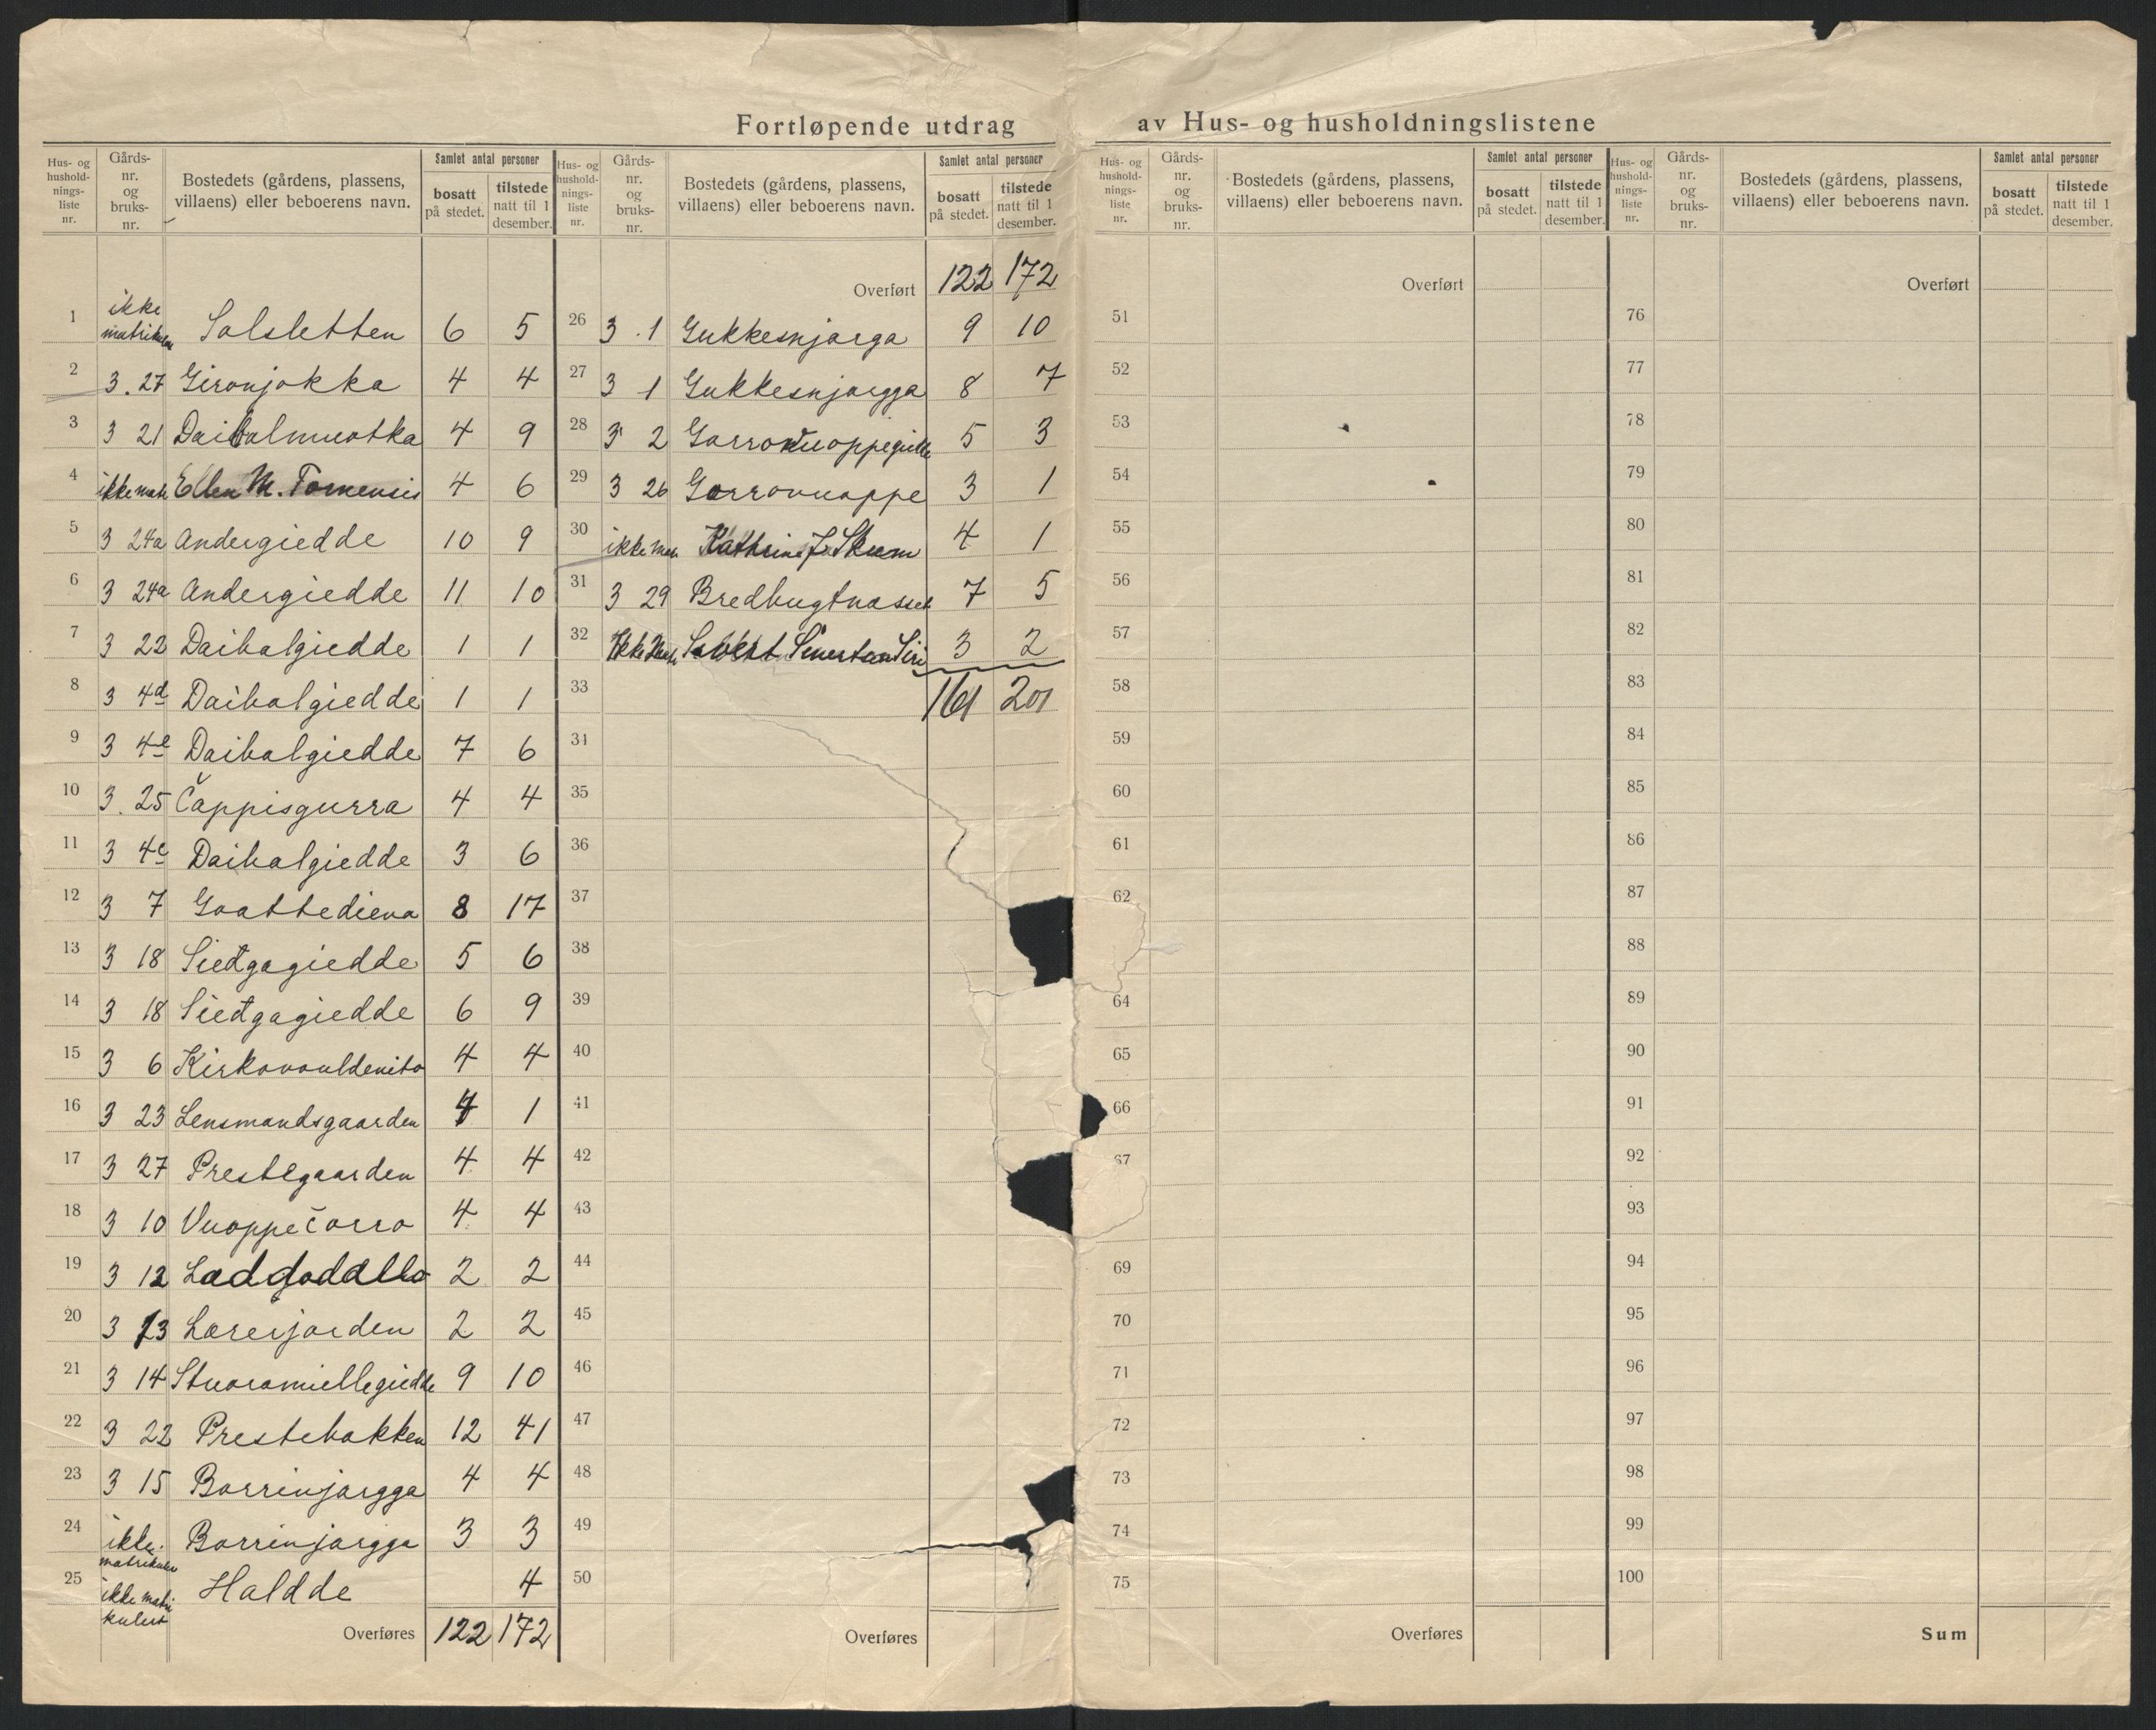 Fortløpende utdrag av Hus- og husholdningslistene
Hus- og husholdnings-liste nr. Gårds-nr. og bruks-nr. Bostedets (gårdens, plassens, villaens) eller beboerens navn. Samlet antal personer bosatt på stedet. tilstede natt til 1 desember.
1 ikke matrikulen Solsletten 6 5
2 3.27 Gironjokka 4 4
3 3 21 Daibalmuotka 4 9
4 ikke matr Ellen M. Tornensis 4 6
5 3 24a Andergiedde 10 9
6 3 24a Andergiedde 11 10
7 3 22 Daibalgiedde 1 1
8 3 4d Daibalgiedde 1 1
9 3 4e Daibalgiedde 7 6
10 3.25 Čappisgurra 4 4
11 3 4c Daibalgiedde 3 6
12 3 7 Goattedieva 8 17
13 3 18 Siedgagiedde 5 6
14 3 18 Siedgagiedde 6 9
15 3 6 Kirkovouldenito 4 4
16 3 23 Lensmandsgaarden 4 1
17 3 27 Prestegaarden 4 4
18 3 10 Vuoppečorro 4 4
19 3 12 Ladgodallo 2 2
20 3 13 Lærerjorden 2 2
21 3 14 Stuoramiellegiedde 9 10
22 3 22 Prestebakken 12 41
23 3 15 Borrinjargga 4 4
24 ikke matrikulen Borrinjargga 3 3
25 ikke matrikulert Haldde 4
Overføres 122 172
Hus- og husholdnings-liste nr. Gårds-nr. og bruks-nr. Bostedets (gårdens, plassens, villaens) eller beboerens navn. Samlet antal personer bosatt på stedet. tilstede natt til 1 desember.
Overført 122 172
26 3.1 Gukkesnjarga 9 10
27 3 1 Gukkesnjargga 8 7
28 3 2 Gorrovuoppegiedde 5 3
29 3 26 Gorrovuoppe 3 1
30 ikke matr Kathrine J. Skum 4 1
31 3 29 Bredbugtnasset 7 5
32 Ikke Matr Siri 3 2
33 161 201
34
35
36
37
38
39
40
41
42
43
44
45
46
47
48
49
50
Overføres
Hus- og husholdnings-liste nr. Gårds-nr. og bruks-nr. Bostedets (gårdens, plassens, villaens) eller beboerens navn. Samlet antal personer bosatt på stedet. tilstede natt til 1 desember.
Overført
51
52
53
54
55
56
57
58
59
60
61
62
64
65
66
67
69
70
71
72
73
74
75
Overføres
Hus- og husholdnings-liste nr. Gårds-nr. og bruks-nr. Bostedets (gårdens, plassens, villaens) eller beboerens navn. Samlet antal personer bosatt på stedet. tilstede natt til 1 desember.
Overført
76
77
78
79
80
81
82
83
84
85
86
87
88
89
90
91
92
93
94
95
96
97
98
99
100
Sum